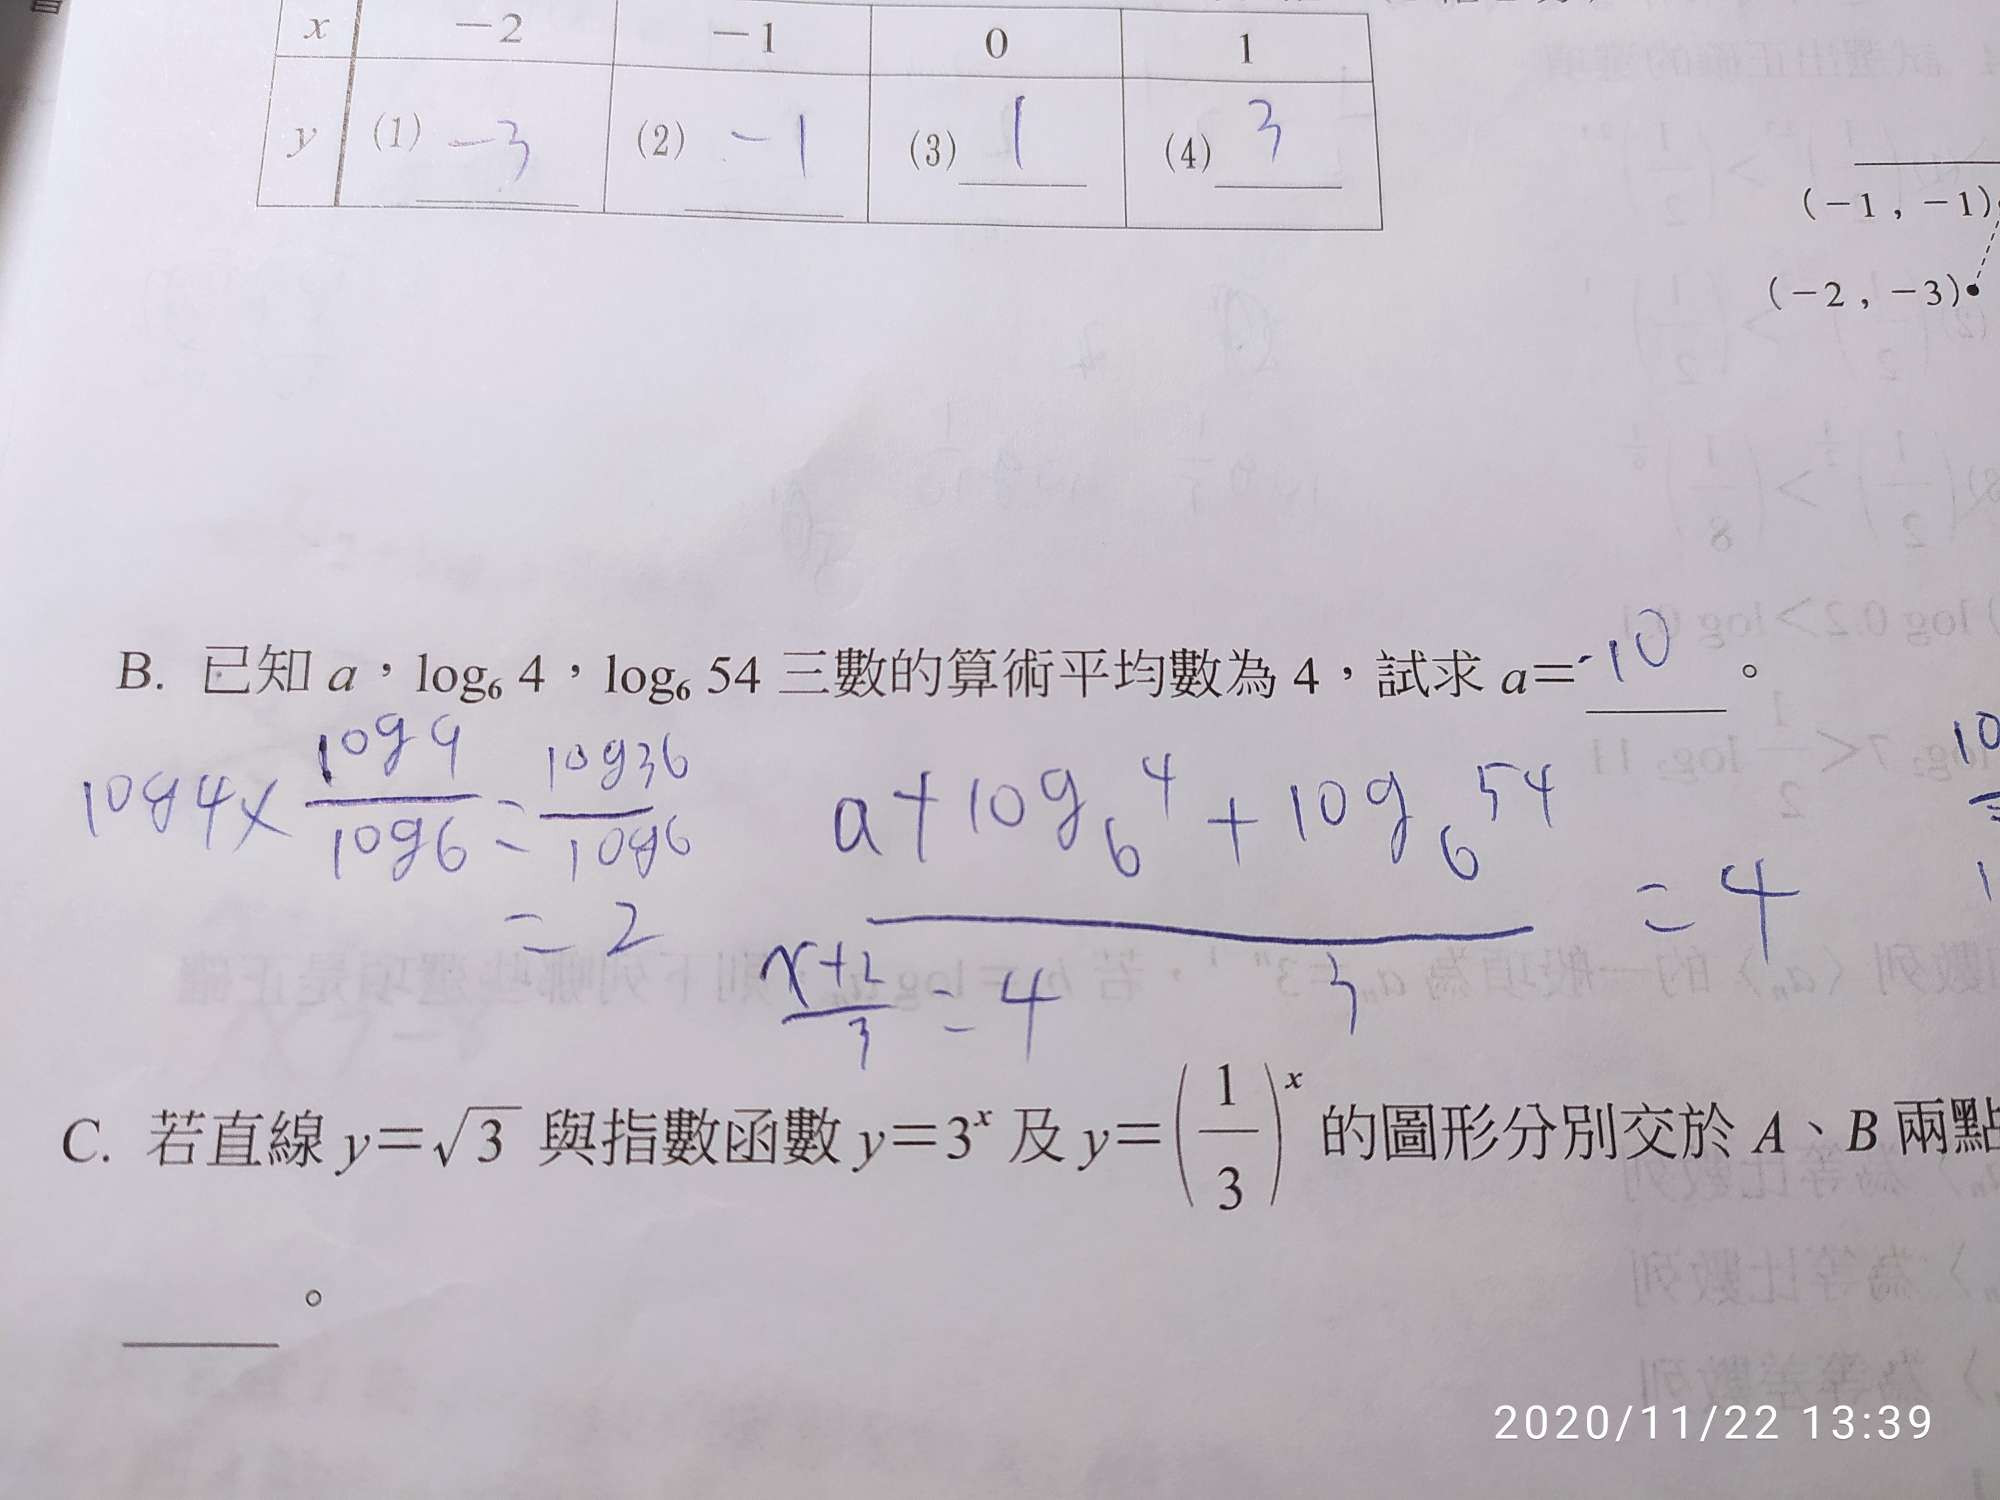 x -2 -1 0 1
y (1) -3 (2) -1 (3) 1 (4) 3
(-1,-1)
(-2,-3)
B. 已知 a,log₆ 4,log₆ 54 三數的算術平均數為 4,試求 a= -10 。
log4× log9/log6 = log36/log6
= 2
(a+log₆4+log₆54)/3 = 4
(x+2)/3 = 4
C. 若直線 y=√3 與指數函數 y=3ˣ 及 y=(1/3)ˣ 的圖形分別交於 A、B 兩點
。
2020/11/22 13:39